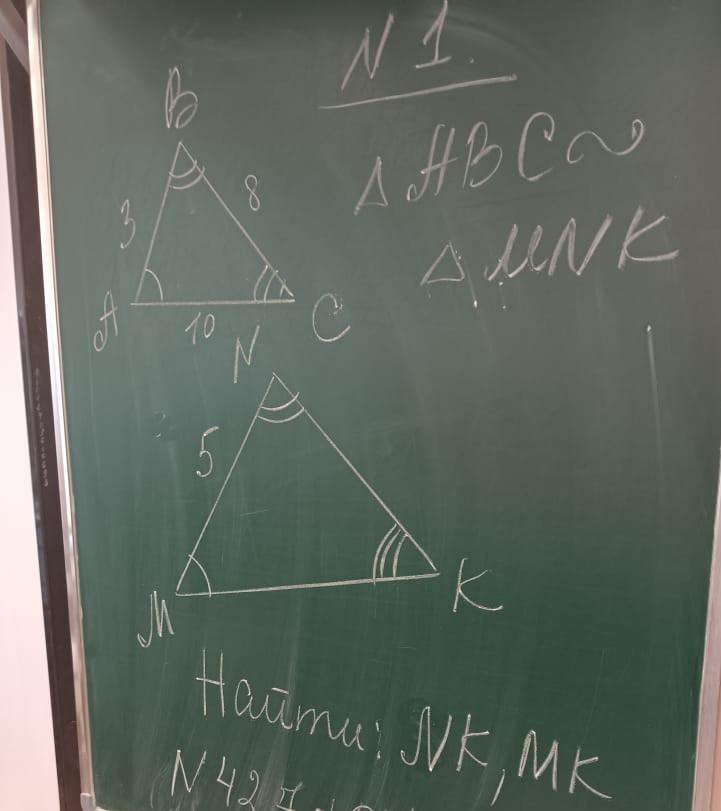 N 1.
B
△ ABC ~
3
8
△ MNK
A
10
C
N
5
M
K
Найти: NK, MK
N 42